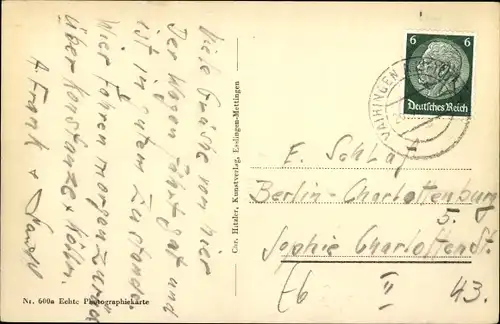 Viele Grüße von hier
Der Wagen fährt gut und
ist in gutem Zustande.
Wir fahren morgen zurück
über Konstanz + Köln.
A. Frank +
Nr. 600a Echte Photographiekarte
Chr. Hitzler, Kunstverlag, Esslingen-Mettingen
6 6
Deutsches Reich
VAIHINGEN
E. Schlaf
Berlin-Charlottenburg
5.
Sophie Charlottenst.
II 43.